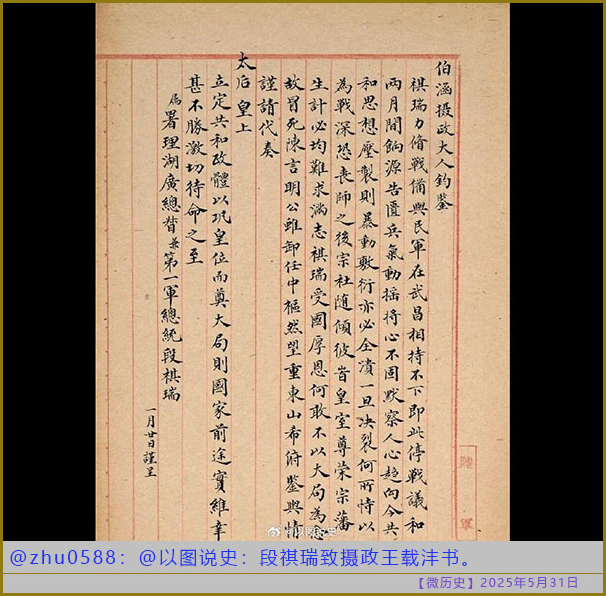 伯涵攝政大人鈞鑒
祺瑞力脩戰備與民軍在武昌相持不下即此停戰議和
兩月間餉源告匱兵氣動搖將心不固默察人心趨向今共
和思想壓製則暴動敷衍亦必全潰一旦决裂何所恃以
為戰深恐喪師之後宗社隨傾彼旹皇室尊榮宗藩
生計必均難求滿志祺瑞受國厚恩何敢不以大局為念
故冒死陳言明公雖卸任中樞然望重東山希俯鑒輿情
謹請代奏
太后皇上
立定共和政體以巩皇位而奠大局則國家前途實維幸
甚不勝激切待命之至
署理湖廣總督兼第一軍總統段祺瑞
一月廿日謹呈
陸軍
@zhu0588：@以图说史：段祺瑞致摄政王载沣书。
【微历史】2025年5月31日